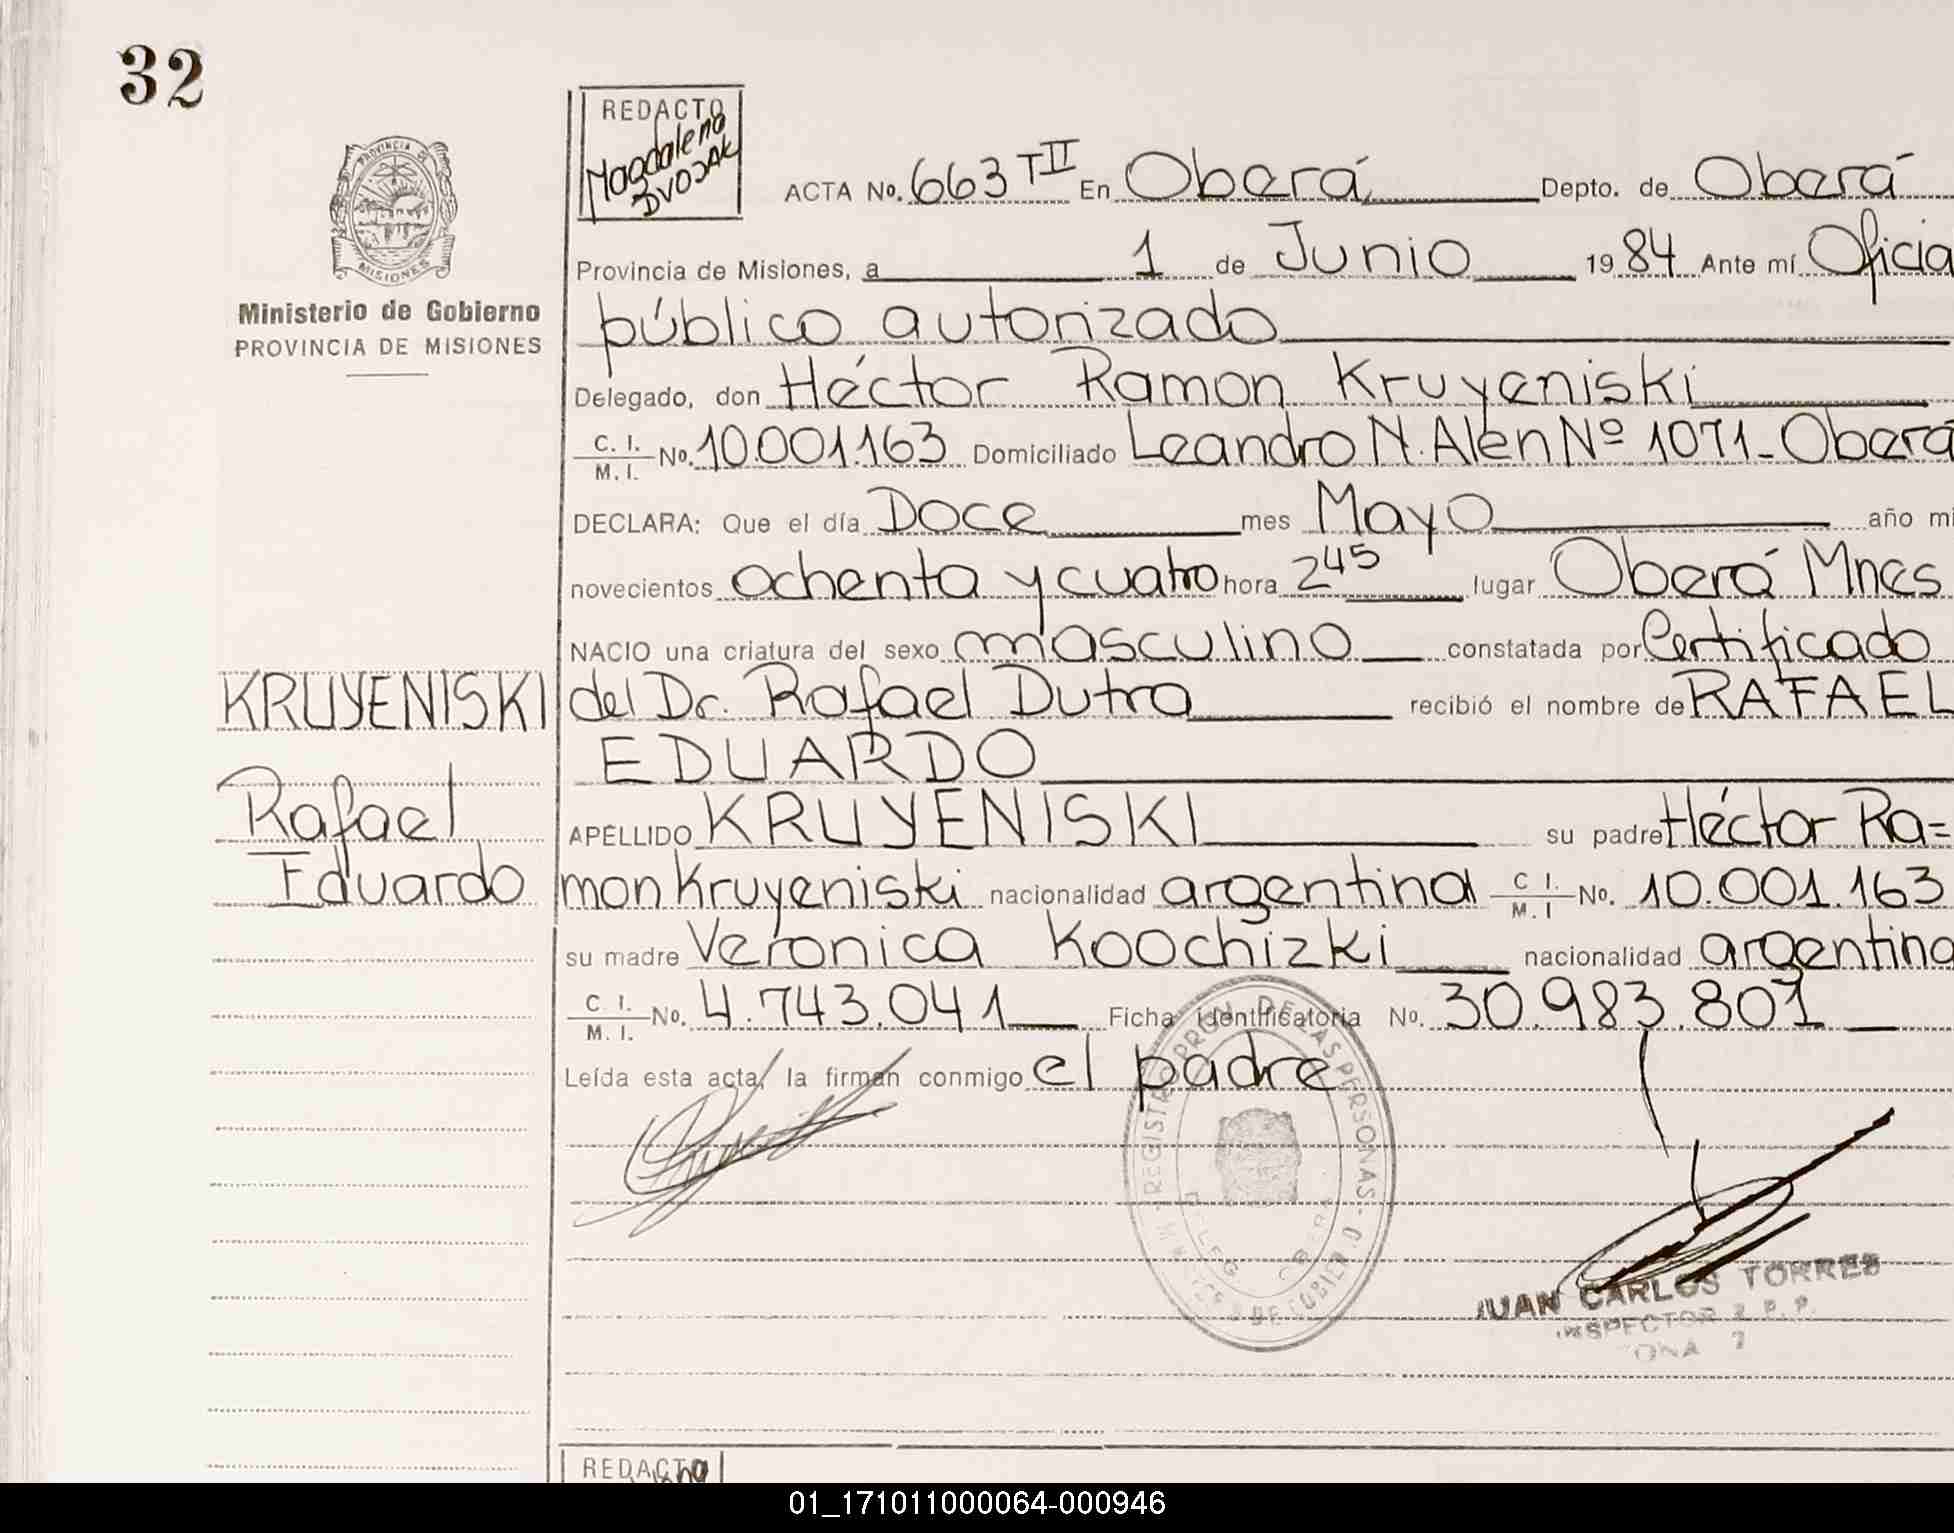 32
REDACTO
Magdalena
DVOJAK
PROVINCIA DE
MISIONES
Ministerio de Gobierno
PROVINCIA DE MISIONES
ACTA No. 663 TII En Oberá Depto. de Oberá
Provincia de Misiones, a 1 de Junio 1984 Ante mí Oficia
público autorizado
Delegado, don Héctor Ramon Kruyeniski
C. I. / M. I. No. 10.001.163 Domiciliado Leandro N. Alen Nº 1071 - Oberá
DECLARA: Que el día Doce mes Mayo año mi
novecientos ochenta y cuatro hora 2 45 lugar Oberá Mnes
NACIO una criatura del sexo masculino constatada por Certificado
KRUYENISKI
del Dr. Rafael Dutra recibió el nombre de RAFAEL
EDUARDO
Rafael
APELLIDO KRUYENISKI su padre Héctor Ra=
Eduardo
mon Kruyeniski nacionalidad argentina C I. / M. I No. 10.001.163
su madre Veronica Koochizki nacionalidad argentina
C. I. / M. I. No. 4.743.041 Ficha identificatoria No. 30.983.801
Leída esta acta, la firman conmigo el padre
REGISTRO PROV. DE LAS PERSONAS
JUAN CARLOS TORRES
INSPECTOR R. P. P.
REDACTO
01_171011000064-000946